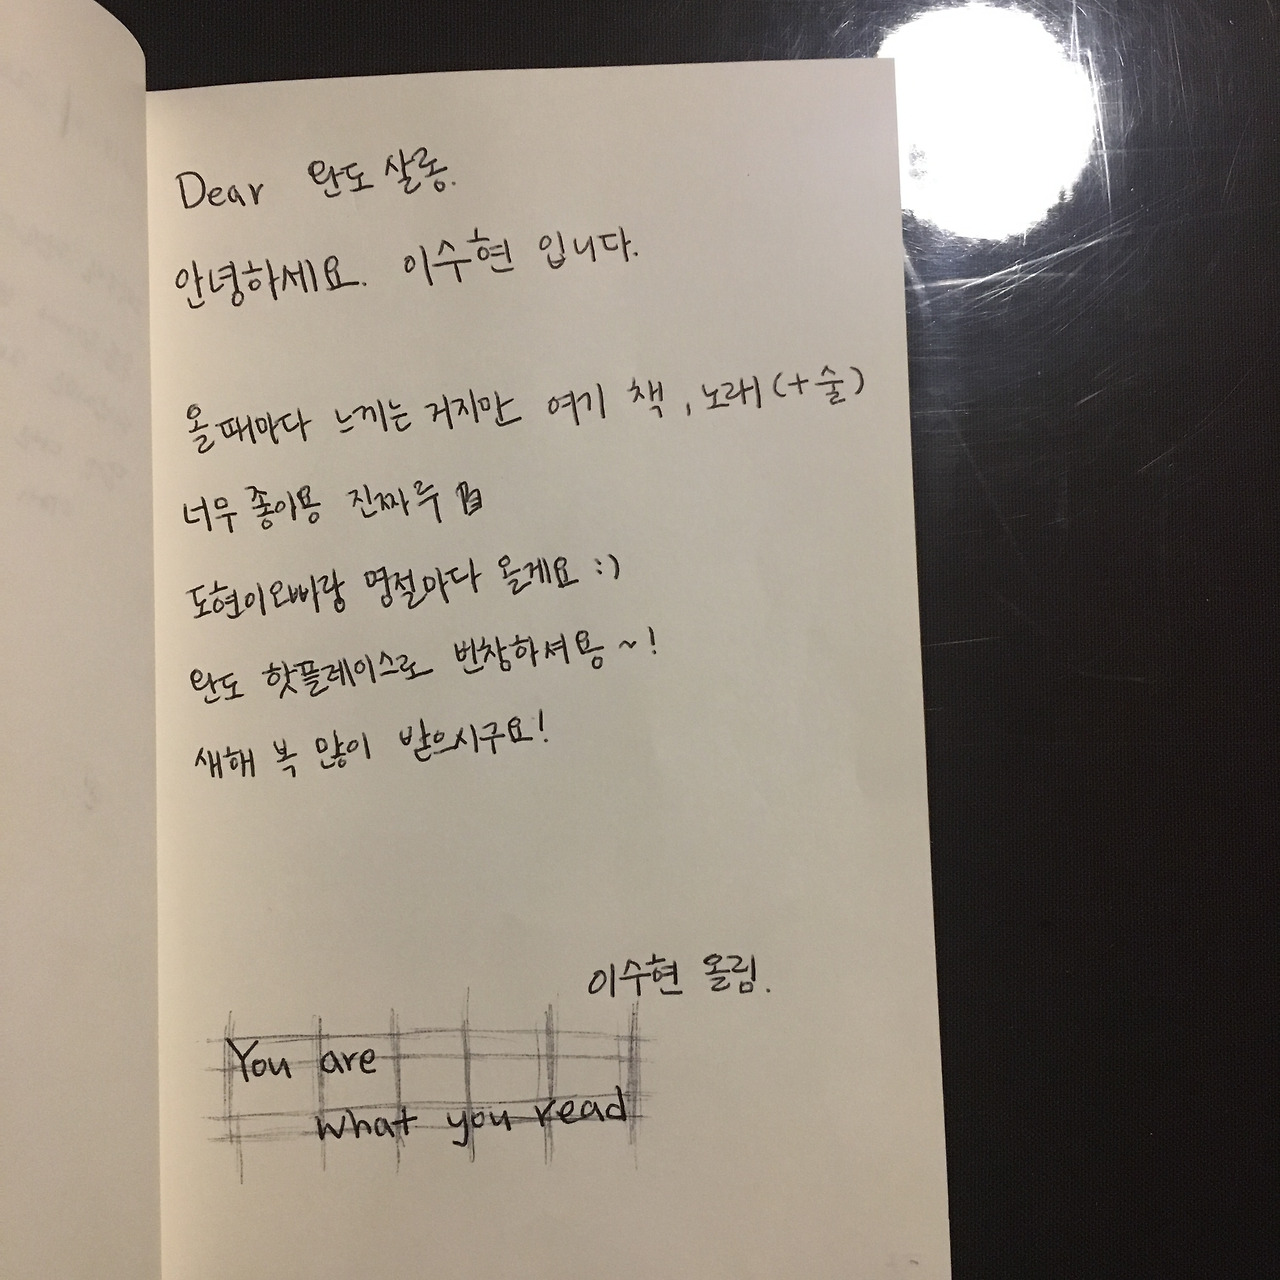 Dear 완도 살롱.
안녕하세요. 이수현 입니다.
올 때마다 느끼는 거지만 여기 책, 노래 (+술)
너무 좋이용 진짜루
도현이오빠랑 명절마다 올게요 :)
완도 핫플레이스로 번창하셔용~!
새해 복 많이 받으시구요!
이수현 올림.
You are
what you read